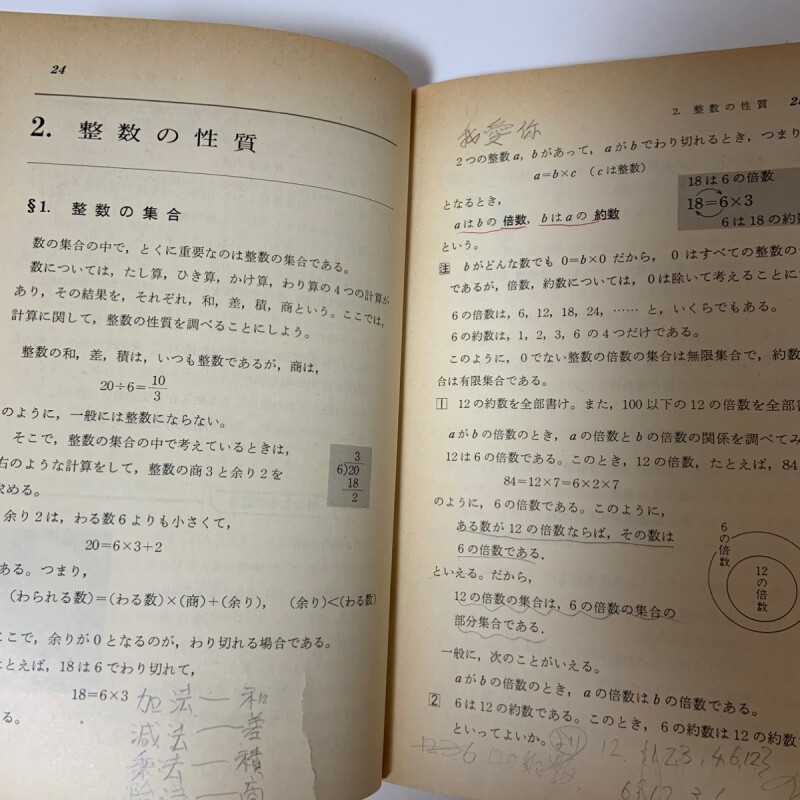 24
2. 整数の性質
§1. 整数の集合
数の集合の中で，とくに重要なのは整数の集合である。
数については，たし算，ひき算，かけ算，わり算の4つの計算が
あり，その結果を，それぞれ，和，差，積，商という。ここでは，
計算に関して，整数の性質を調べることにしよう。
整数の和，差，積は，いつも整数であるが，商は，
20÷6=10/3
のように，一般には整数にならない。
そこで，整数の集合の中で考えているときは，
右のような計算をして，整数の商3と余り2を
求める。
3
6)20
18
2
余り2は，わる数6よりも小さくて，
20=6×3+2
ある。つまり，
(わられる数)=(わる数)×(商)+(余り)，　(余り)<(わる数)
ここで，余りが0となるのが，わり切れる場合である。
たとえば，18は6でわり切れて，
18=6×3
る。
加法—和
減法—差
乗法—積
2. 整数の性質
我愛你
2つの整数a, bがあって，aがbでわり切れるとき，つまり
a=b×c　(cは整数)
となるとき，
aはbの倍数，bはaの約数
という。
18は6の倍数
18=6×3
6は18の約数
注　bがどんな数でも 0=b×0 だから，0はすべての整数の
であるが，倍数，約数については，0は除いて考えることに
6の倍数は，6, 12, 18, 24, …… と，いくらでもある。
6の約数は，1, 2, 3, 6 の4つだけである。
このように，0でない整数の倍数の集合は無限集合で，約数
合は有限集合である。
1　12の約数を全部書け。また，100以下の12の倍数を全部書
aがbの倍数のとき，aの倍数とbの倍数の関係を調べてみ
12は6の倍数である。このとき，12の倍数，たとえば，84
84=12×7=6×2×7
のように，6の倍数である。このように，
ある数が12の倍数ならば，その数は
6の倍数である．
といえる。だから，
12の倍数の集合は，6の倍数の集合の
部分集合である．
6の倍数
12の倍数
一般に，次のことがいえる。
aがbの倍数のとき，aの倍数はbの倍数である。
2　6は12の約数である。このとき，6の約数は12の約数
といってよいか。
12. {1, 2, 3, 4, 6, 12}